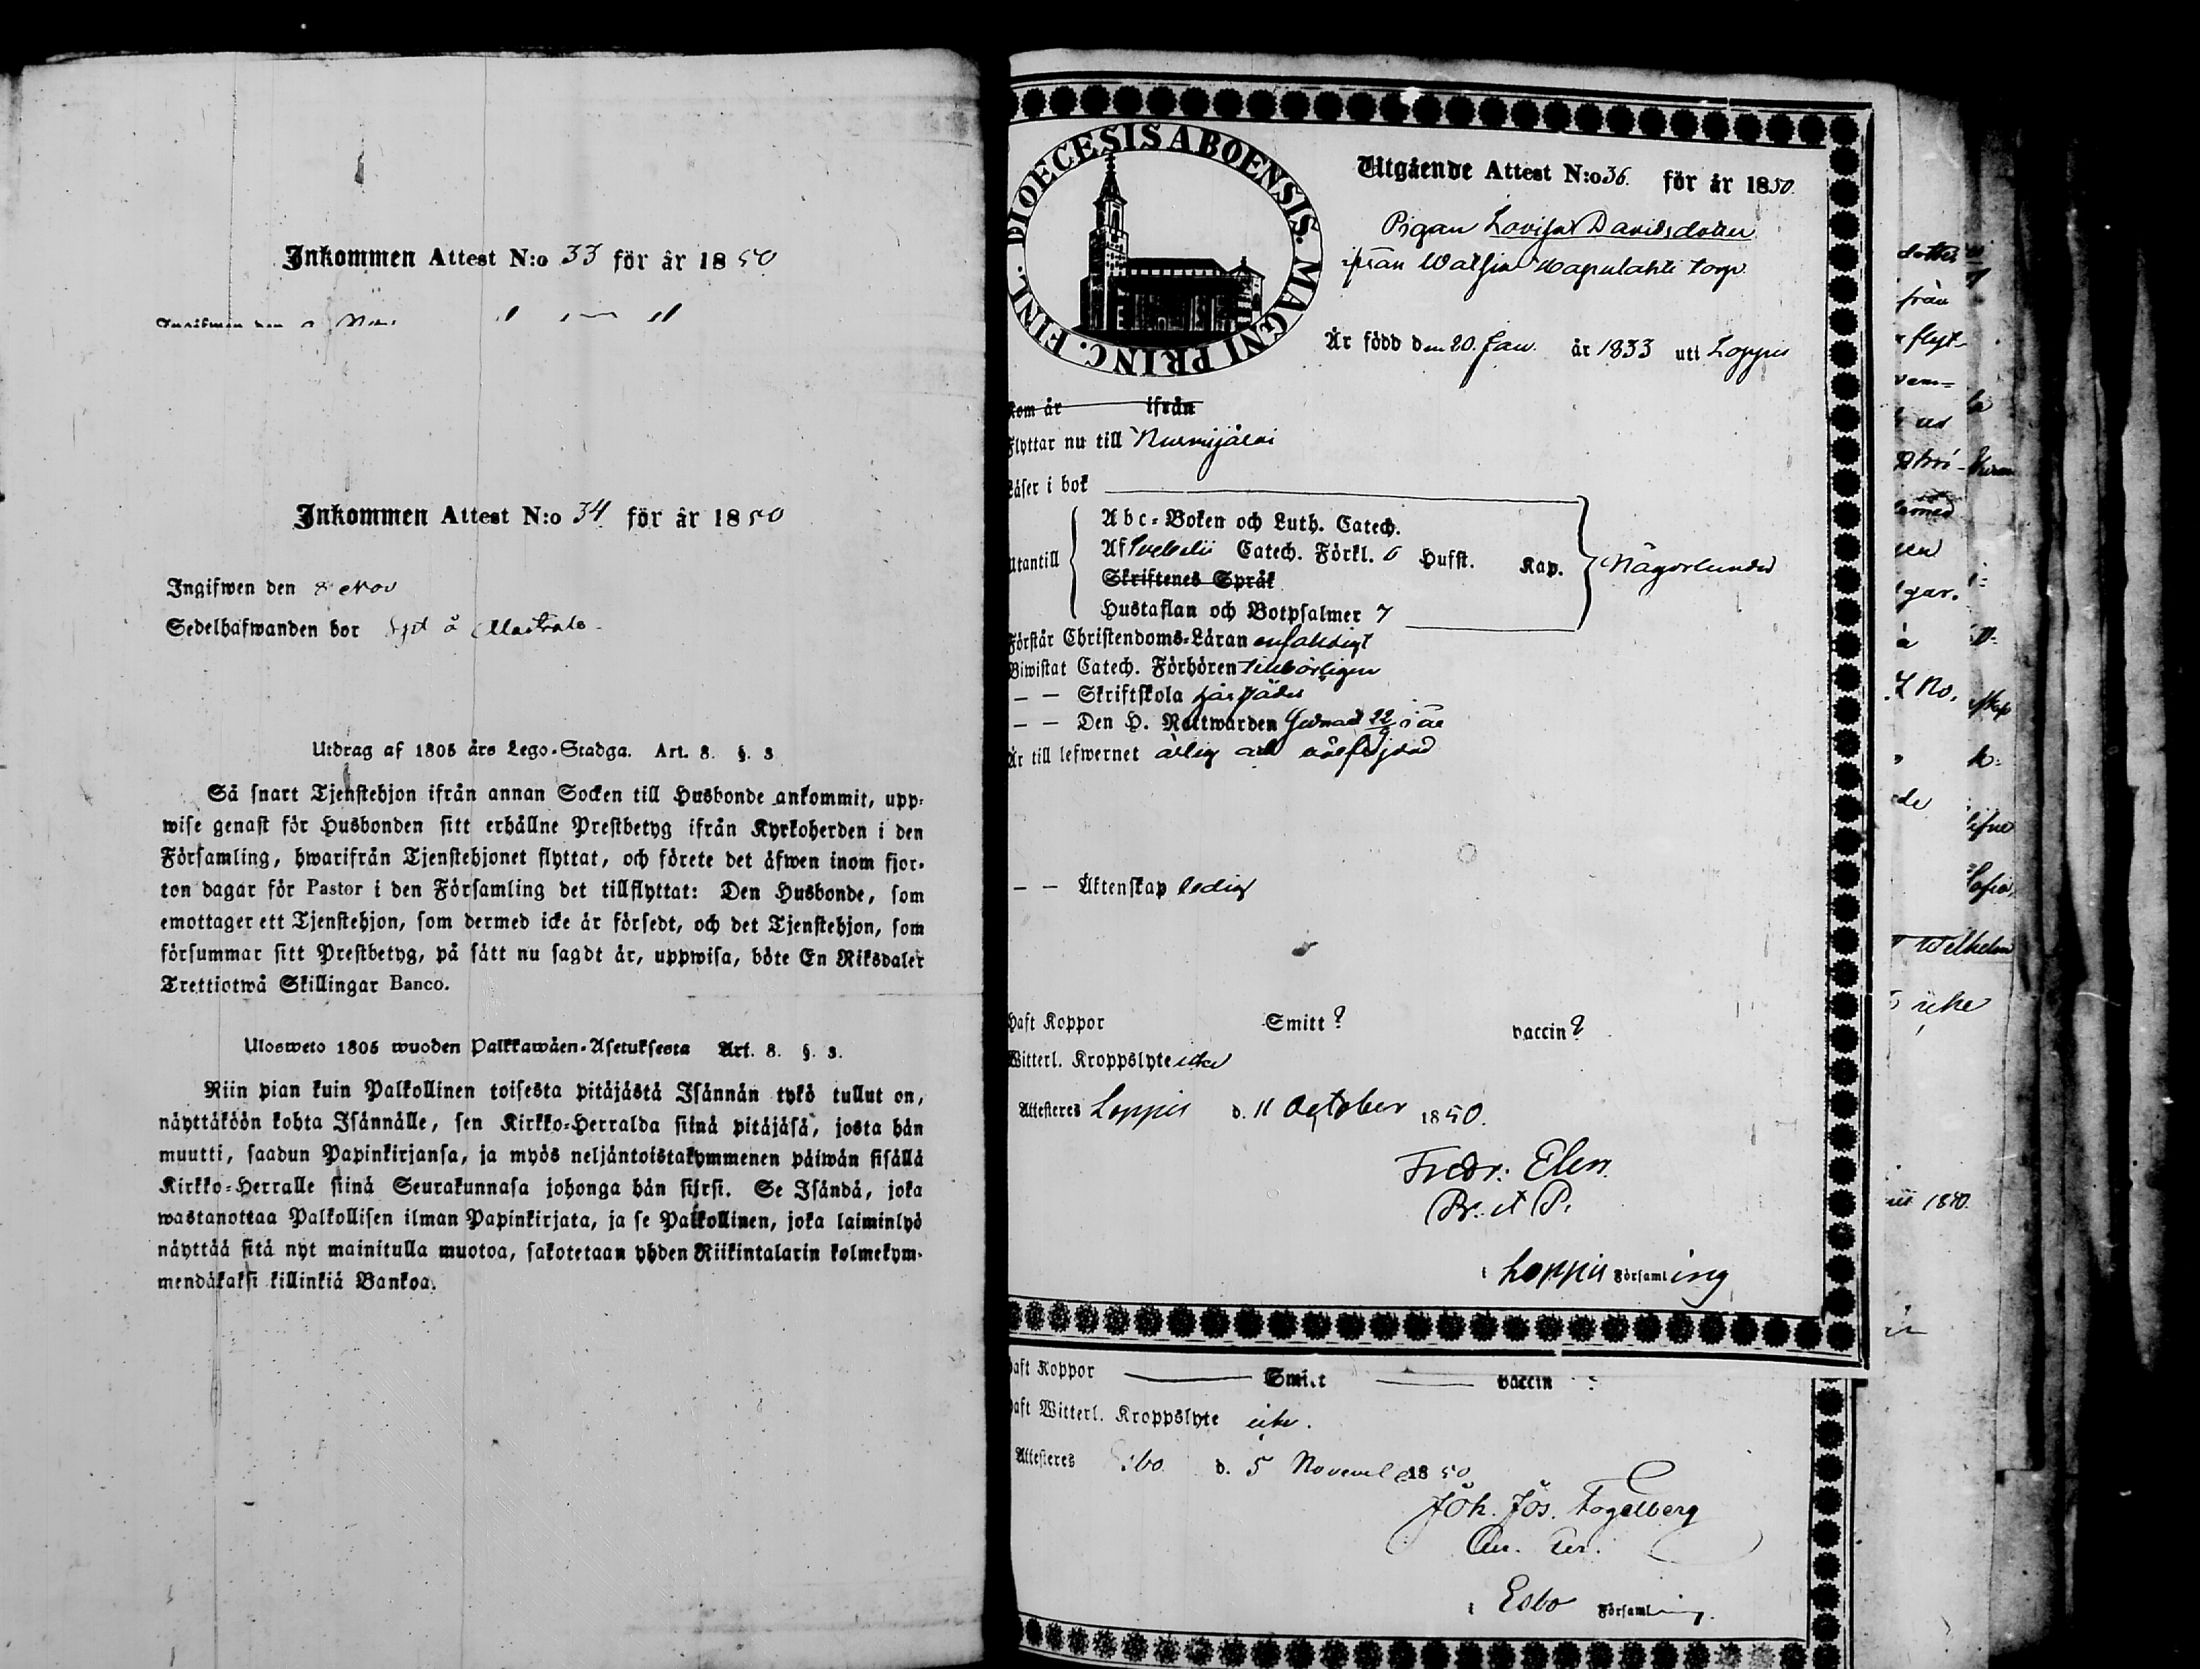 Inkommen Attest N:o 33 för år 1850
Inkommen Attest N:o 34 för år 1850
Ingifwen den 8 Nov
Sedelhafwanden bor å
Utdrag af 1805 års Lego-Stadga. Art. 8. §. 3
Så snart Tjenstehjon ifrån annan Socken till Husbonde ankommit, upp-
wise genast för Husbonden sitt erhållne Prestbetyg ifrån Kyrkoherden i den
Församling, hwarifrån Tjenstehjonet flyttat, och förete det äfwen inom fjor-
ton dagar för Pastor i den Församling det tillflyttat: Den Husbonde, som
emottager ett Tjenstehjon, som dermed icke är försedt, och det Tjenstehjon, som
försummar sitt Prestbetyg, på sätt nu sagdt är, uppwisa, böte En Riksdaler
Trettiotwå Skillingar Banco.
Ulosweto 1805 wuoden Palkkawäen-Asetuksesta Art. 8. §. 3.
Niin pian kuin Palkollinen toisesta pitäjästä Isännän tykö tullut on,
näyttäköön kohta Isännälle, sen Kirkko-Herralda siinä pitäjäsä, josta hän
muutti, saadun Papinkirjansa, ja myös neljäntoistakymmenen päiwän sisällä
Kirkko-Herralle siinä Seurakunnasa johonga hän siirsi. Se Isändä, joka
wastanottaa Palkollisen ilman Papinkirjata, ja se Palkollinen, joka laiminlyö
näyttää sitä nyt mainitulla muotoa, sakotetaan yhden Riikintalarin kolmekym-
mendäkaksi killinkiä Bankoa.
DIOECESIS ABOENSIS. MAGNI PRINC. FINL.
Utgående Attest N:o 36. för år 1850.
Pigan Lovisa Davidsdotter
ifrån Watsia Hapulahti torp
Är född den 20. Jan. år 1833 uti Loppis
Kom år ifrån
Flyttar nu till Nurmijärvi
Läser i bok
Utantill
Abc-Boken och Luth. Catech.
Af Svebelii Catech. Förkl. 6 Hufst. Kap.
Skriftenes Språk
Hustaflan och Botpsalmer 7
Någorlunda
Förstår Christendoms-Läran enfaldigt
Biwistat Catech. Förhören tillbörligen
— — Skriftskola härstädes
— — Den H. Nattwarden 22 i år
Är till lefwernet ärlig och
— — Äktenskap ledig
Haft Koppor Smitt? vaccin?
Witterl. Kroppslyte icke
Attesteres Loppis d. 11 October 1850.
Fredr: Elen
Pr. et P.
i Loppis Församling
Haft Koppor Smitt vaccin
Haft Witterl. Kroppslyte icke.
Attesteres Esbo d. 5 November 1850
Joh. Jos. Fogelberg
i Esbo Församling.
från
Wilhelm
icke
1850.